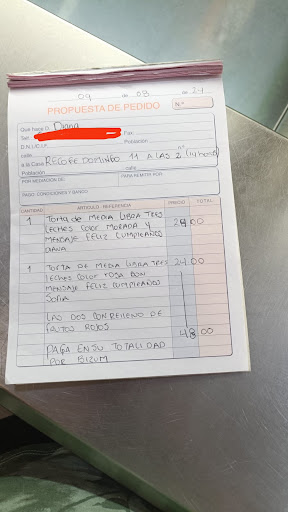 09 de 08 de 24
PROPUESTA DE PEDIDO N.º
Que hace D. Diana
Tel: Fax:
D.N.I./C.I.F. Población
calle n.º
a la Casa RECOGE DOMINGO 11 A LAS 2 (14 horas)
Población calle
POR MEDIACION DE: PARA REMITIR POR:
PAGO: CONDICIONES Y BANCO
CANTIDAD ARTICULO - REFERENCIA PRECIO TOTAL
1 TORTA DE MEDIA LIBRA TRES 24.00
LECHES COLOR MORADA Y
MENSAJE FELIZ CUMPLEAÑOS
DIANA
1 TORTA DE MEDIA LIBRA TRES 24.00
LECHES COLOR ROSA CON
MENSAJE FELIZ CUMPLEAÑOS
SOFIA
LAS DOS CON RELLENO DE
FRUTOS ROJOS 48.00
PAGA EN SU TOTALIDAD
POR BIZUM